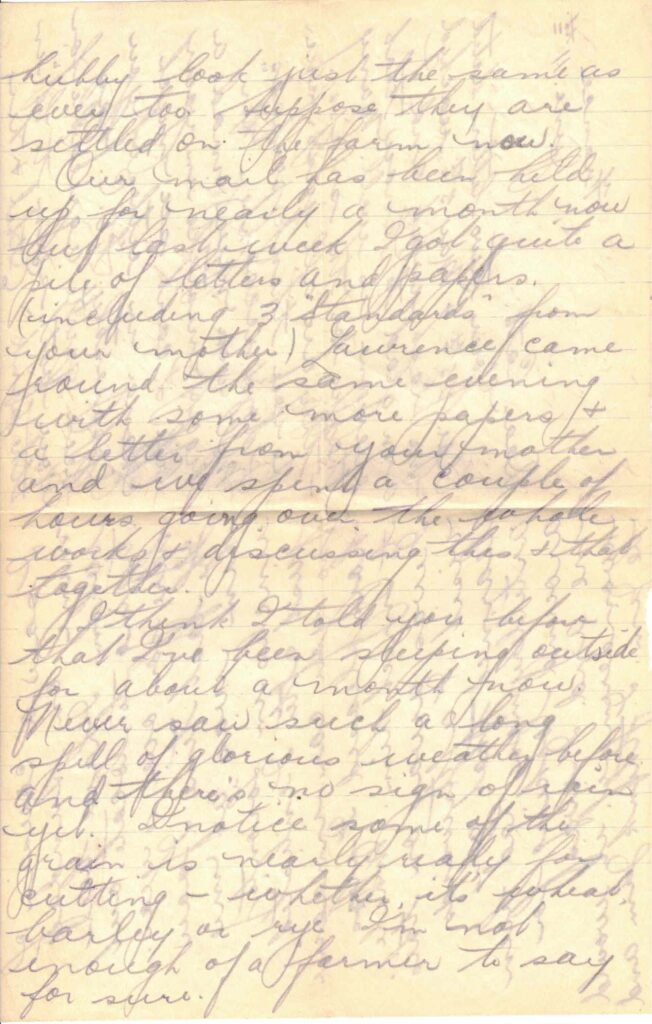 hubby look just the same as
ever too. Suppose they are
settled on the farm now.
Our mail has been held
up for nearly a month now
but last week I got quite a
pile of letters and papers.
(including 3 "Standards" from
your mother) Lawrence came
round the same evening
with some more papers &
a letter from your mother
and we spent a couple of
hours going over the whole
works & discussing this & that
together.
I think I told you before
that I've been sleeping outside
for about a month now.
Never saw such a long
spell of glorious weather before
and there's no sign of rain
yet. I notice some of the
grain is nearly ready for
cutting - whether it's wheat,
barley or rye I'm not
enough of a farmer to say
for sure.